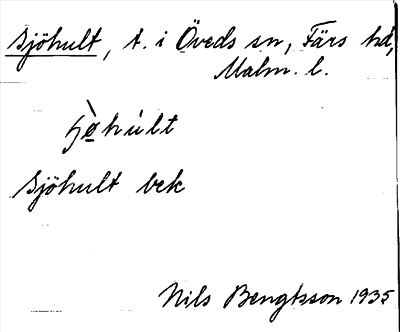 Sjöhult, t. i Öveds sn, Färs hd,
Malm. l.
Sjöhult bek
Nils Bengtsson 1935